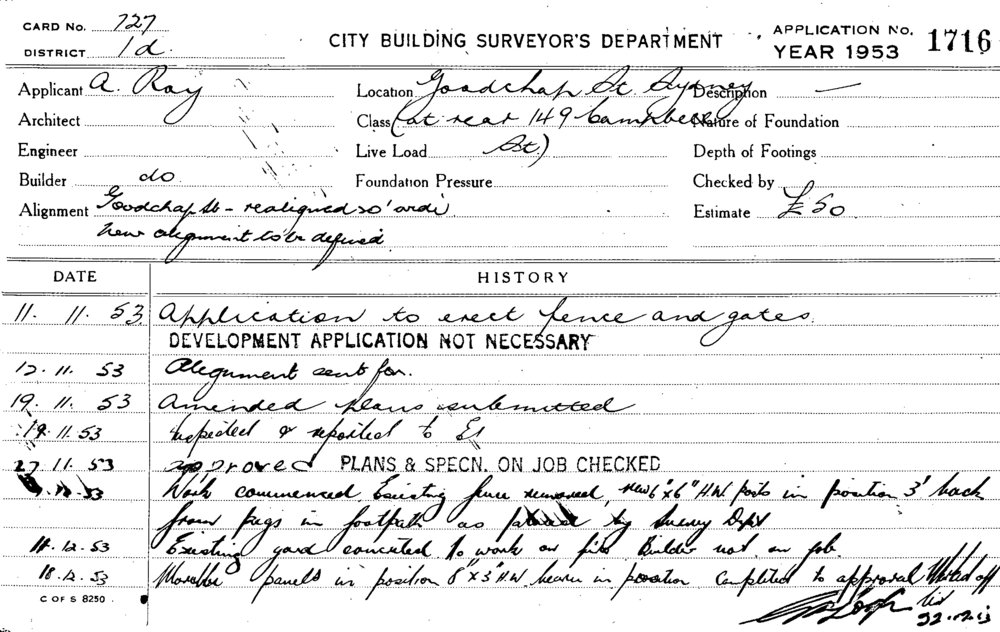 CARD No. 727
DISTRICT 1d.
CITY BUILDING SURVEYOR'S DEPARTMENT
APPLICATION No. 1716
YEAR 1953
Applicant A. Ray
Location Goodchap St Sydney
Description —
Architect
Class (at rear 149 Campbell
Nature of Foundation
Engineer
Live Load St.)
Depth of Footings
Builder do
Foundation Pressure
Checked by
Alignment Goodchap St - realigned 50'
Estimate £50
New alignment to be defined
DATE HISTORY
11. 11. 53 Application to erect fence and gates.
DEVELOPMENT APPLICATION NOT NECESSARY
12. 11. 53 Alignment sent for.
19. 11. 53 Amended plans submitted
19. 11. 53 Inspected & reported to
27. 11. 53 approved PLANS & SPECN. ON JOB CHECKED
53 Work commenced Existing fence removed, new 6"x6" H.W. posts in position 3' back
from pegs in footpath as by Survey Dept
12. 53 Existing yard converted to work on Builder not on job.
18. 12. 53 Movable panels in position 8"x3" H.W. bearer in position Completed to approval
22. 12. 53
C OF S 8250